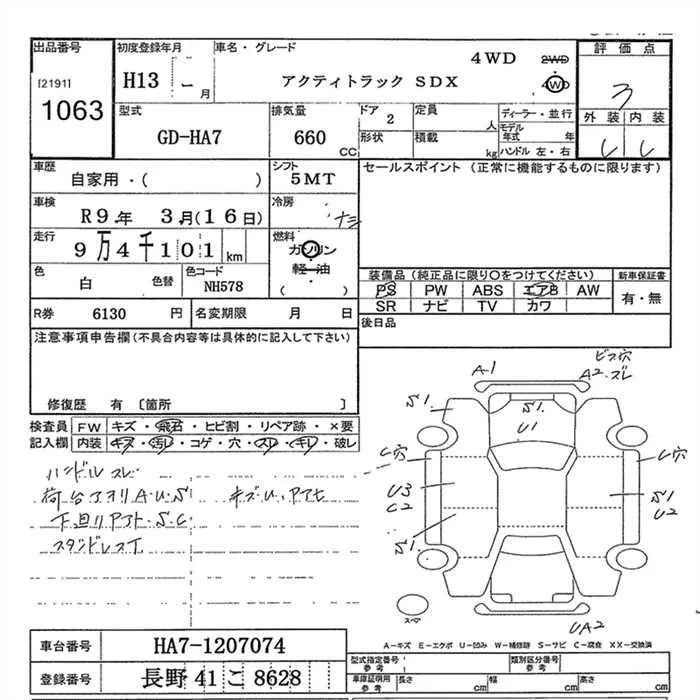 出品番号
[2191]
1063
初度登録年月
H13 - 月
車名・グレード
アクティトラック SDX
4WD 2WD
4WD
評価点
3
外装 内装
型式
GD-HA7
排気量
660 CC
ドア 2
形状
定員 人
積載 kg
ディーラー・並行
モデル年式 年
ハンドル 左・右
車歴
自家用・( )
シフト
5MT
セールスポイント (正常に機能するものに限ります)
車検
R9年 3月(16日)
冷房
ナシ
走行
9万4千101 km
燃料
ガソリン
軽油
( )
色
白
色替
色コード
NH578
装備品 (純正品に限り○をつけてください)
新車保証書
PS PW ABS エアB AW
有・無
SR ナビ TV カワ
R券 6130 円
名変期限 月 日
後日品
注意事項申告欄 (不具合内容等は具体的に記入して下さい)
修復歴 有 〔箇所 〕
検査員記入欄
FW キズ・飛石・ヒビ割・リペア跡・×要
内装 キズ・汚レ・コゲ・穴・スレ・キレ・破レ
ハンドルスレ
荷台アオリA.U.S キズU、
下廻リ S.C
A-1
ビス穴
A2.ズレ
S1
S1.
U1
U穴
U3
C2
S1
U2
S1
スペア
UA2
A-キズ E-エクボ U-凹み W-補修跡 S-サビ C-腐食 XX-交換済
車台番号 HA7-1207074
登録番号 長野 41 こ 8628
型式指定番号 参考
類別区分番号 参考
車庫証明用 参考 長さ cm 幅 cm 高さ cm